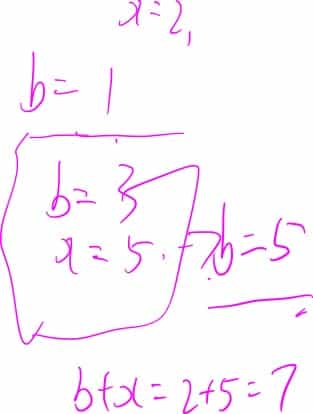 x=2,
b=1
b=3
x=5. →b=5
b+x=2+5=7